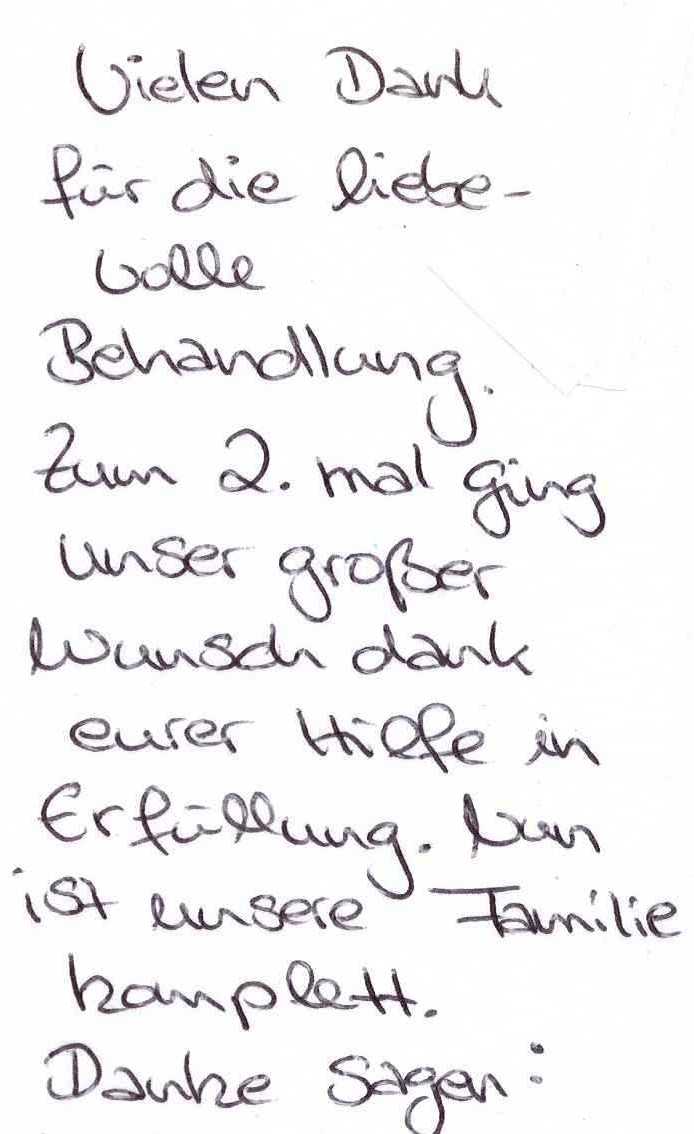 Vielen Dank
für die liebe-
volle
Behandlung.
Zum 2. mal ging
unser großer
Wunsch dank
eurer Hilfe in
Erfüllung. Nun
ist unsere Familie
komplett.
Danke sagen: